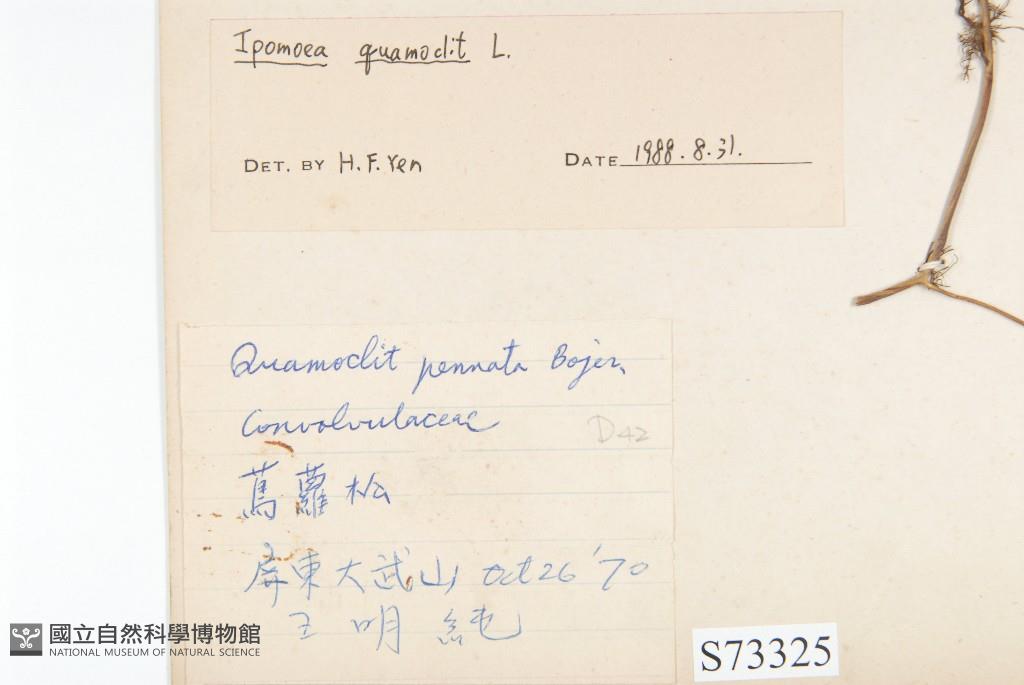 Ipomoea quamoclit L.
DET. BY H. F. Yen DATE 1988. 8. 31.
Quamoclit pennata Bojer,
Convolvulaceae
D42
蔦蘿松
屏東大武山 Oct 26 '70
王明純
國立自然科學博物館
NATIONAL MUSEUM OF NATURAL SCIENCE
S73325